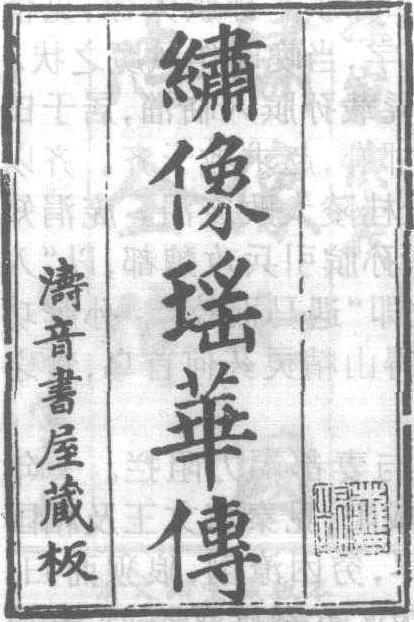 繡像瑶華傳
濤音書屋藏板